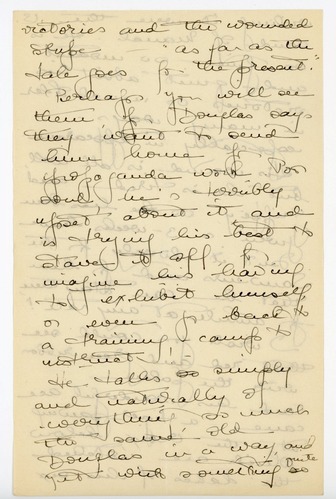 victories and the wounded
stripe "as far as the
tale goes for the present."
Perhaps you will see
them if Douglas says
they want to send
him home for
propaganda work Poor
soul he is terribly
upset about it and
is trying his best to
stave it off for
imagine his having
to exhibit himself,
or even go back to
a training camp to
instruct!
He talks so simply
and naturally of
everything so much
the same old
Douglas in a way, and
yet with something quite so